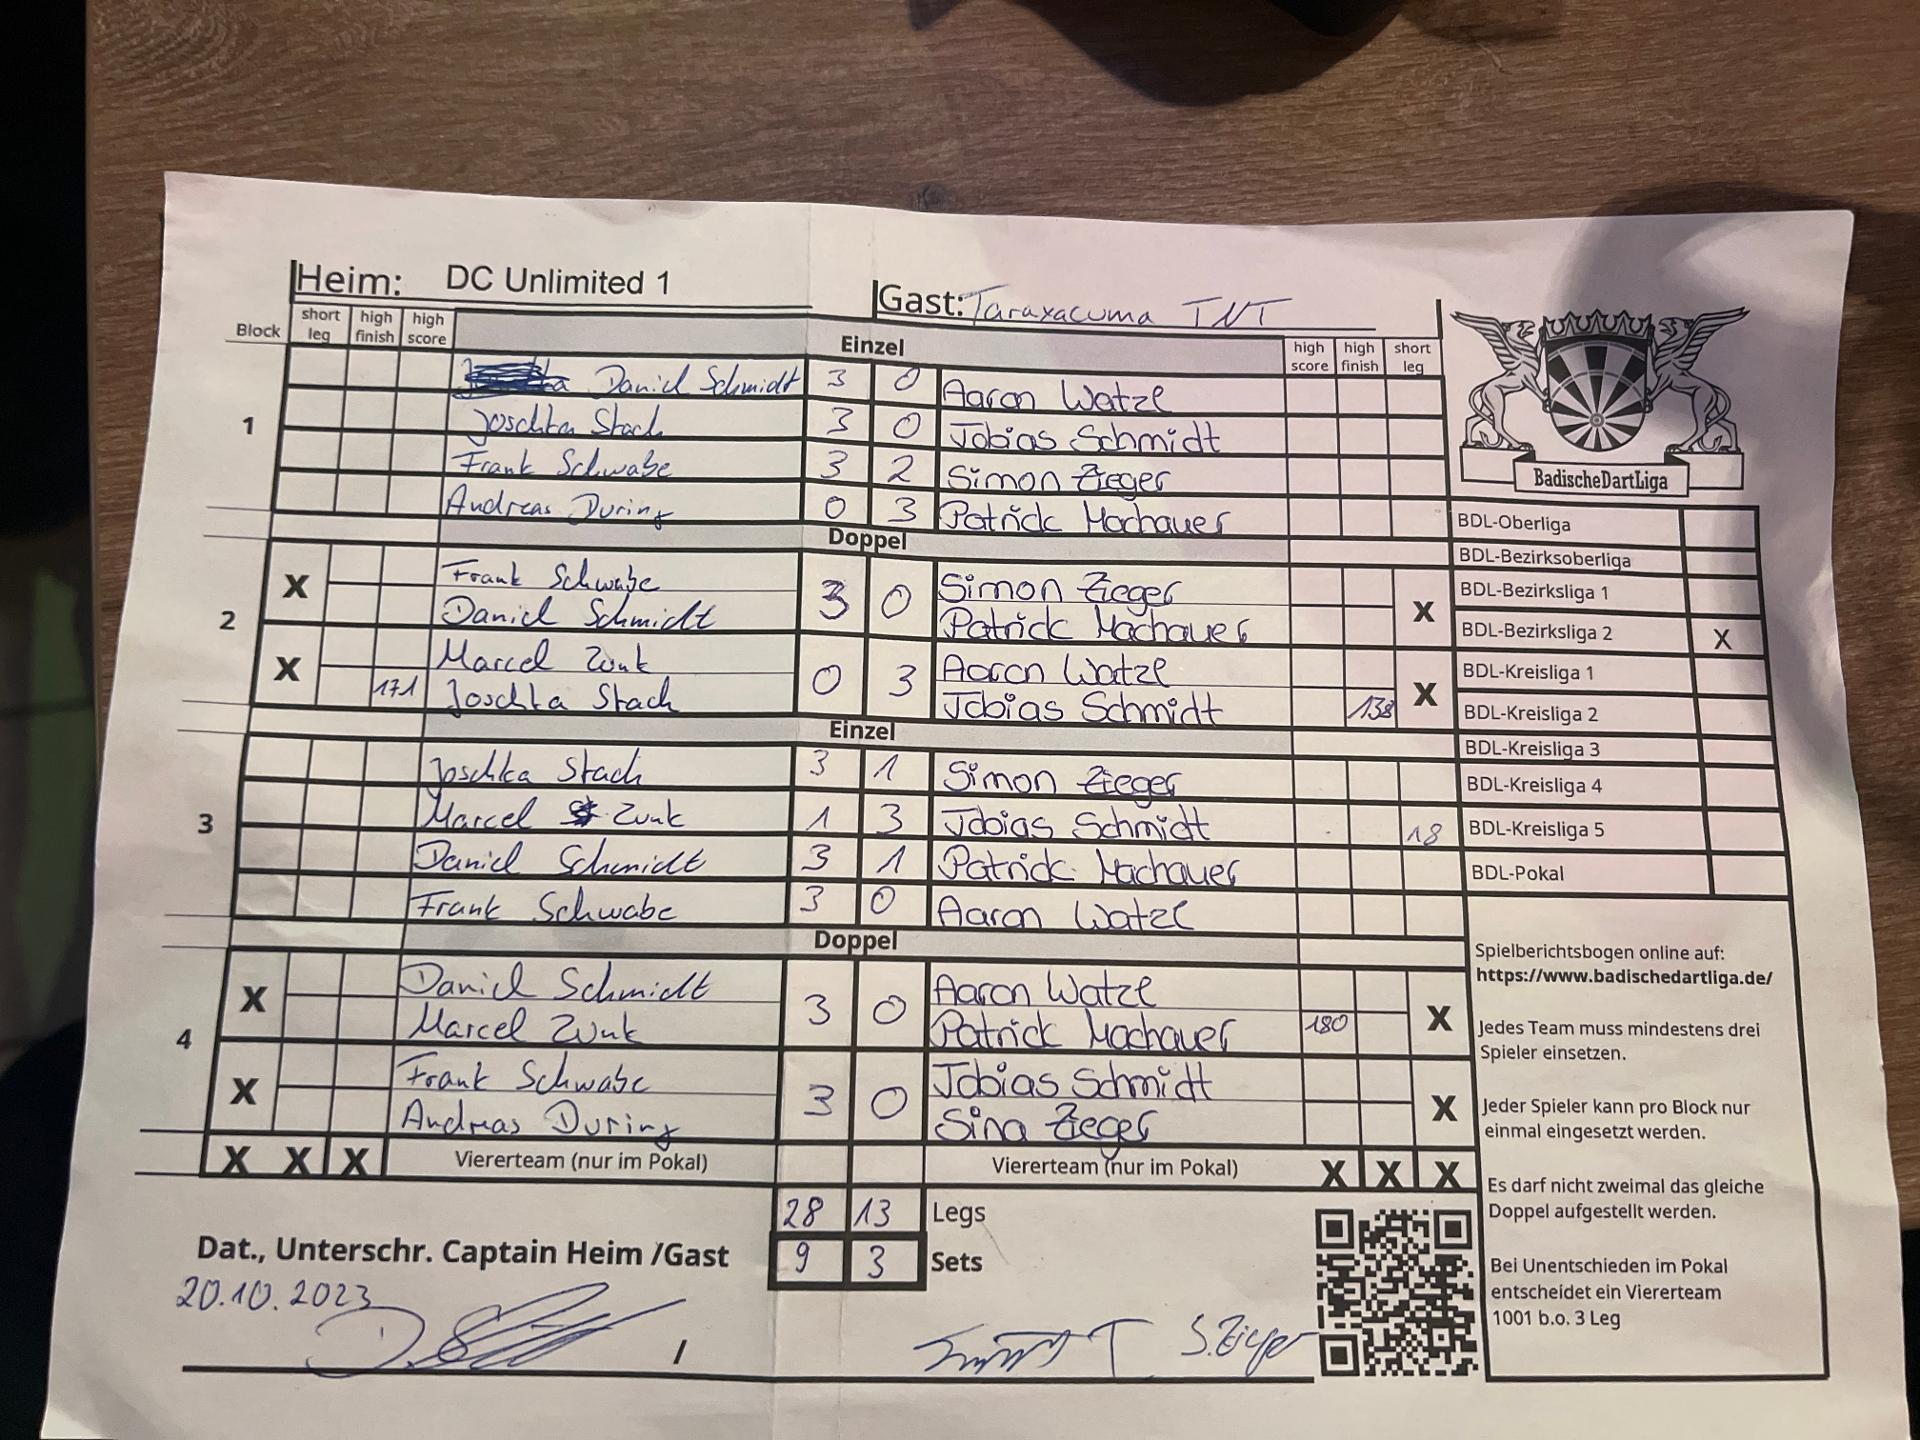 Heim: DC Unlimited 1 Gast: Taraxacuma TNT
Block short leg high finish high score Einzel high score high finish short leg
Daniel Schmidt 3 0 Aaron Watzl
1 Joschka Stach 3 0 Tobias Schmidt
Frank Schwabe 3 2 Simon Zieger
Andreas During 0 3 Patrick Machauer
Doppel
X Frank Schwabe 3 0 Simon Zieger X
Daniel Schmidt Patrick Machauer
2
X Marcel Zunk 0 3 Aaron Watzl X
171 Joschka Stach Tobias Schmidt 138
Einzel
Joschka Stach 3 1 Simon Zieger
3 Marcel Zunk 1 3 Tobias Schmidt 18
Daniel Schmidt 3 1 Patrick Machauer
Frank Schwabe 3 0 Aaron Watzl
Doppel
X Daniel Schmidt 3 0 Aaron Watzl X
Marcel Zunk Patrick Machauer 180
4
X Frank Schwabe 3 0 Tobias Schmidt X
Andreas During Sina Zieger
X X X Viererteam (nur im Pokal) Viererteam (nur im Pokal) X X X
28 13 Legs
9 3 Sets
Dat., Unterschr. Captain Heim /Gast
20.10.2023
/ S. Zieger
BadischeDartLiga
BDL-Oberliga
BDL-Bezirksoberliga
BDL-Bezirksliga 1
BDL-Bezirksliga 2 X
BDL-Kreisliga 1
BDL-Kreisliga 2
BDL-Kreisliga 3
BDL-Kreisliga 4
BDL-Kreisliga 5
BDL-Pokal
Spielberichtsbogen online auf:
https://www.badischedartliga.de/
Jedes Team muss mindestens drei
Spieler einsetzen.
Jeder Spieler kann pro Block nur
einmal eingesetzt werden.
Es darf nicht zweimal das gleiche
Doppel aufgestellt werden.
Bei Unentschieden im Pokal
entscheidet ein Viererteam
1001 b.o. 3 Leg